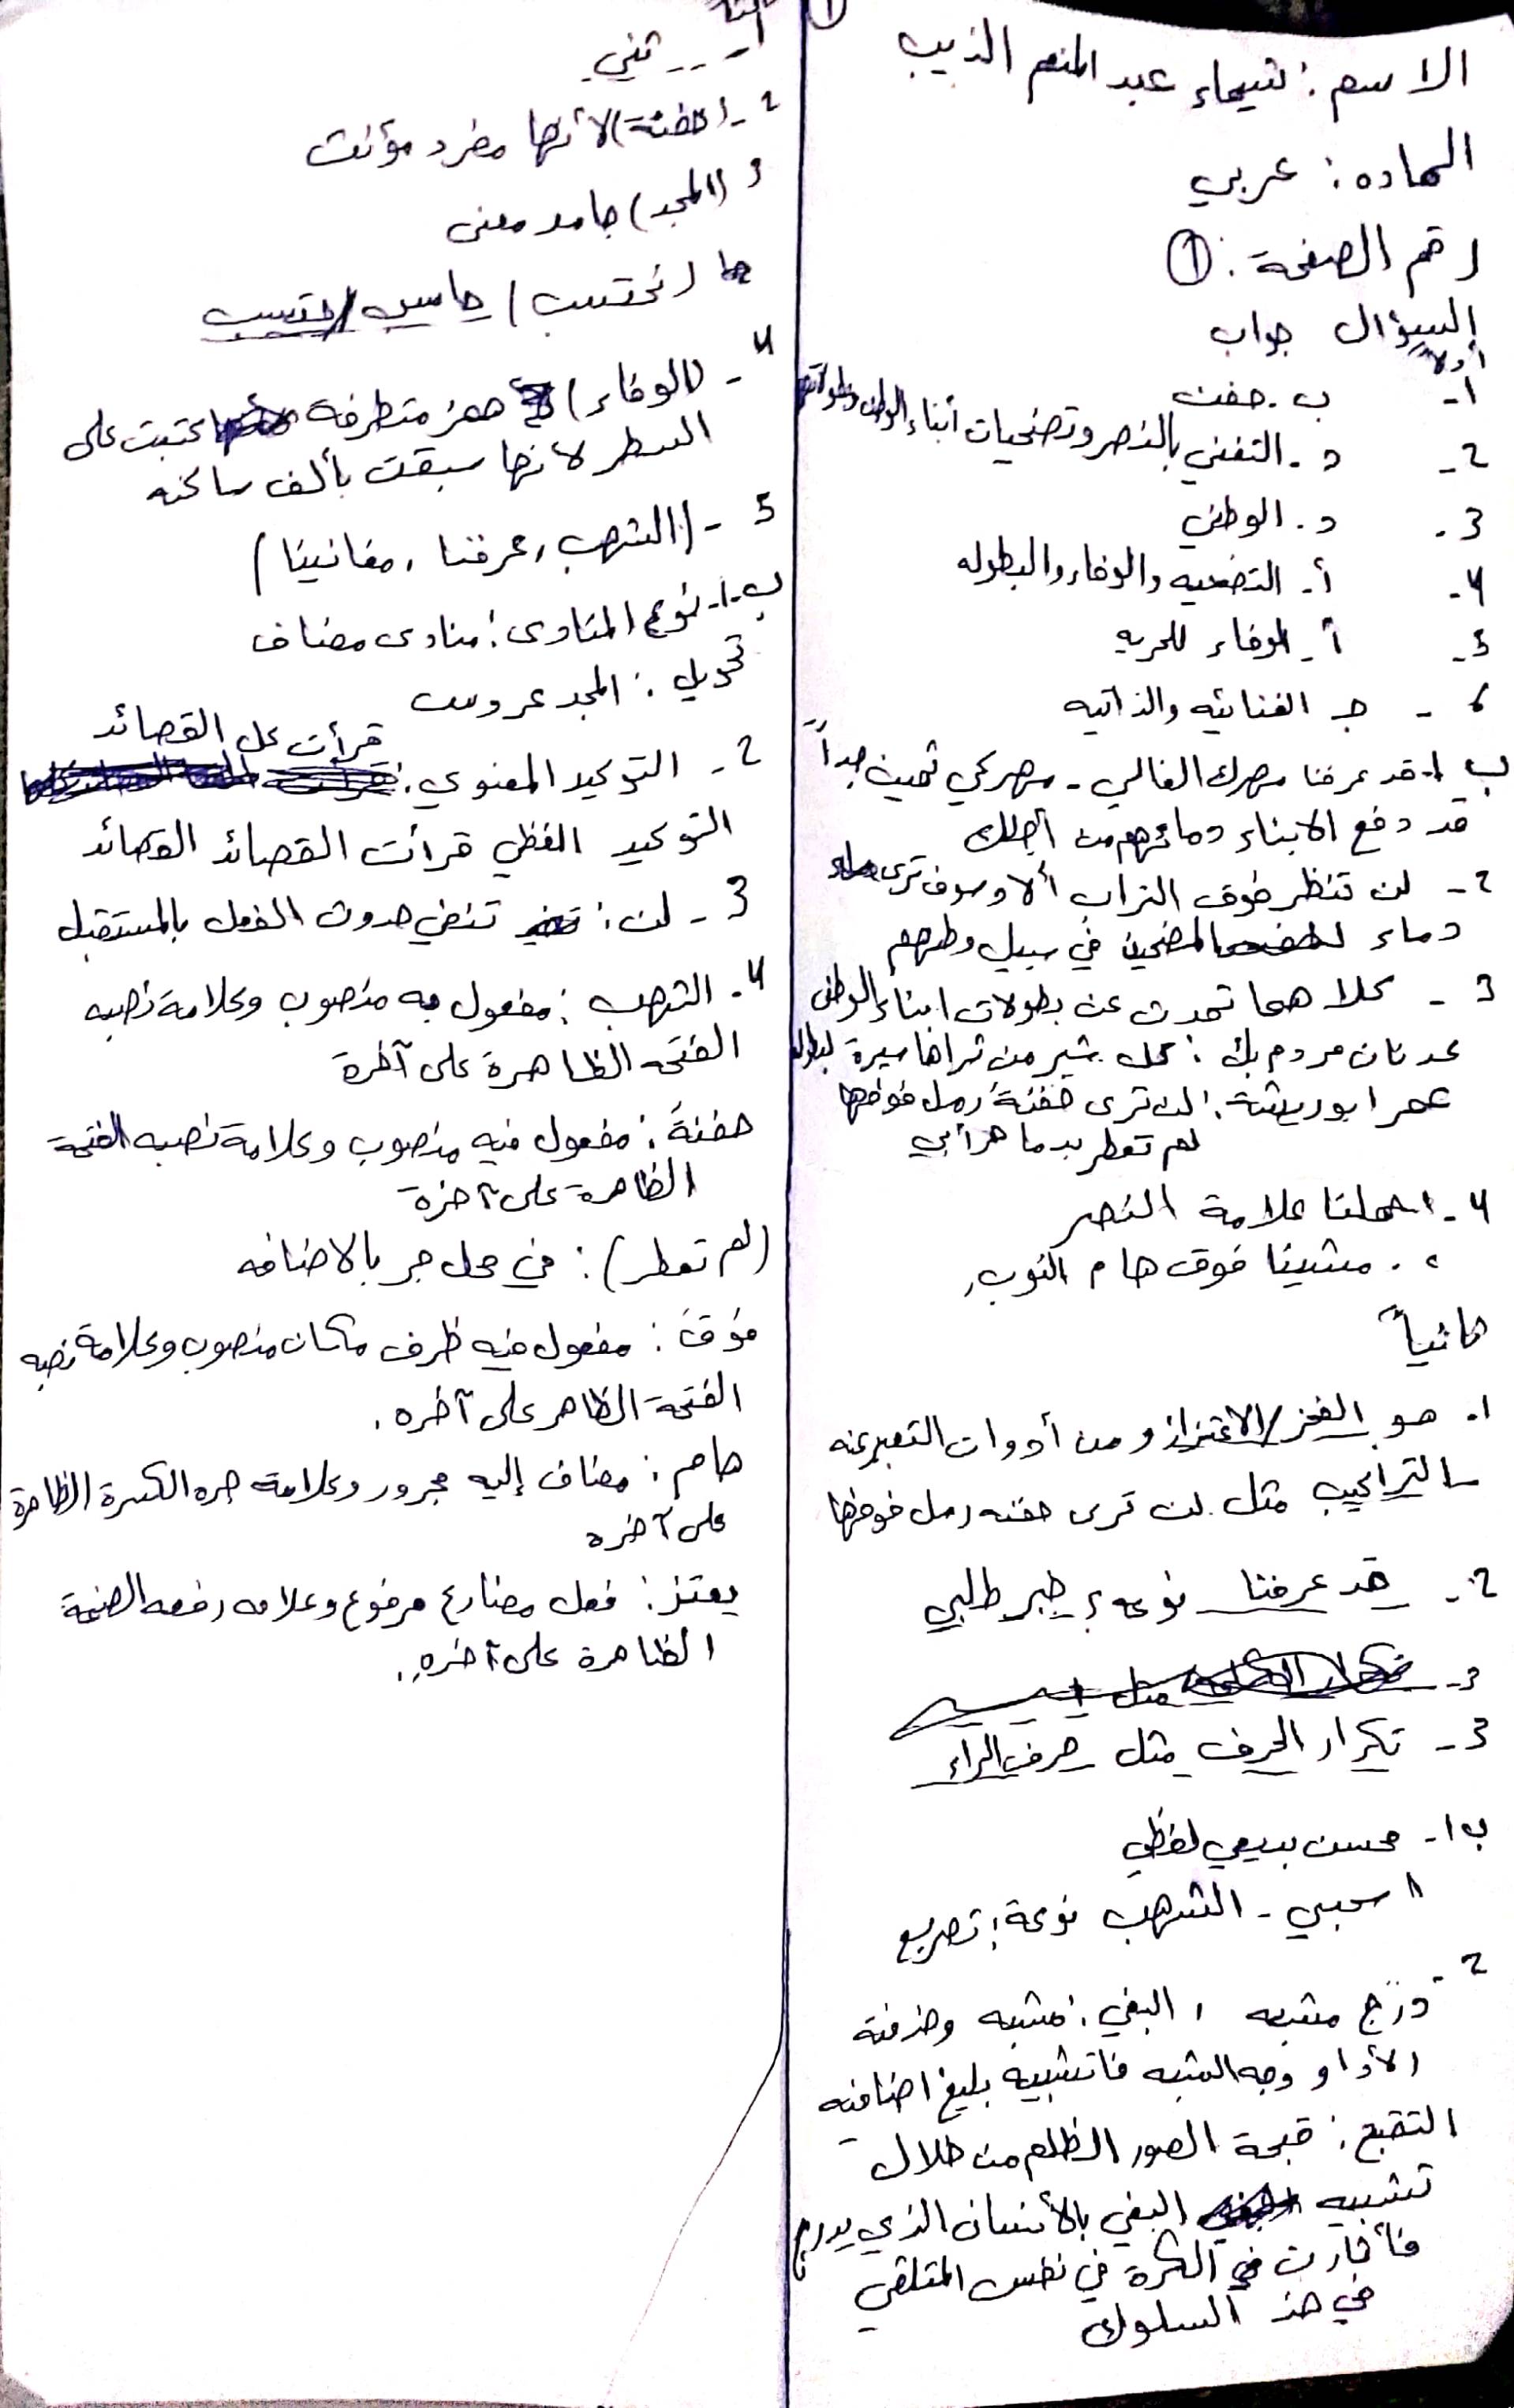 الاسم: شيماء عبد المنعم الذيب
الماده: عربي
رقم الصفحة: ①
السؤال جواب
أولاً
1- ب. جفت
2- د. التغني بالنصر وتضحيات أبناء الوطن وبطولاتهم
3. د. الوطني
4- أ. التضحيه والوفاء والبطوله
5- أ- الوفاء للحريه
6 - جـ الغنائيه والذاتيه
ب 1. قد عرفنا مهرك الغالي - مهركي ثمين جداً
قد دفع الابناء دمائهم من أجلك
2- لن تنظر فوق التراب ألا وسوف ترى
دماء المضحين في سبيل وطنهم
3 - كلا هما تحدث عن بطولات ابناء الوطن
عدنان مردم بك: كل شبر من ثراها سيرة لبطوله
عمر ابو ريشة: لن ترى حفنةُ رمل فوقها
لم تعطر بدما حر أبي
4- 1. حملنا علامة النصر
2. مشينا فوق هام النوب,
ثانياً
1. هو الفخر/الاعتزاز ومن أدوات التعبير عنه
التراكيب مثل. لن ترى حفنه رمل فوقها
2- قد عرفنا نوعه: خبر طلبي
3-
3- تكرار الحرف مثل حرف الراء
ب 1- محسن بديعي لفظي
اسحبي - الشهب نوعة: تصريع
2-
درج مشبه , البغي: مشبه وحذفة
الأدا و وجه الشبه فاتشبيه بليغ اضافيه
التقبح: قبحة الصور الظلم من خلال
تشبيه البغي بالأنسان الذي يدرج
فأثارت في الكرة في نفس المتلقي
في هذ السلوك
1- - - ثني.
2- (حفنة) لأنها مفرد مؤنث
3 (المجد) جامد معنى
(نحتسب) حاسب/حتسب
4- (الوفاء) همز متطرفة كتبت على
السطر لانها سبقت بألف ساكنه
5 - (الشهب, عرفنا, مغانينا)
ب-1- نوع المنادى: منادى مضاف
تحويل: المجد عروس
2- التوكيد المعنوي: قرأت كل القصائد
التوكيد الفظي قرأت القصائد القصائد
3- لن: تنفي حدوث الفعل بالمستقبل
4. الشهب: مفعول به منصوب وعلامة نصبه
الفتحه الظاهرة على آخرة
حفنةً: مفعول فيه منصوب وعلامة نصبه الفتحة
الظاهرة على آخرة
(لم تعطر): في محل جر بالاضافه
فوقَ: مفعول فيه ظرف مكان منصوب وعلامة نصبه
الفتحة الظاهر على آخره.
هام: مضاف إليه مجرور وعلامة جره الكسرة الظاهرة
على آخره
يعتز: فعل مضارع مرفوع وعلامه رفعه الضمة
الظاهرة على آخره.